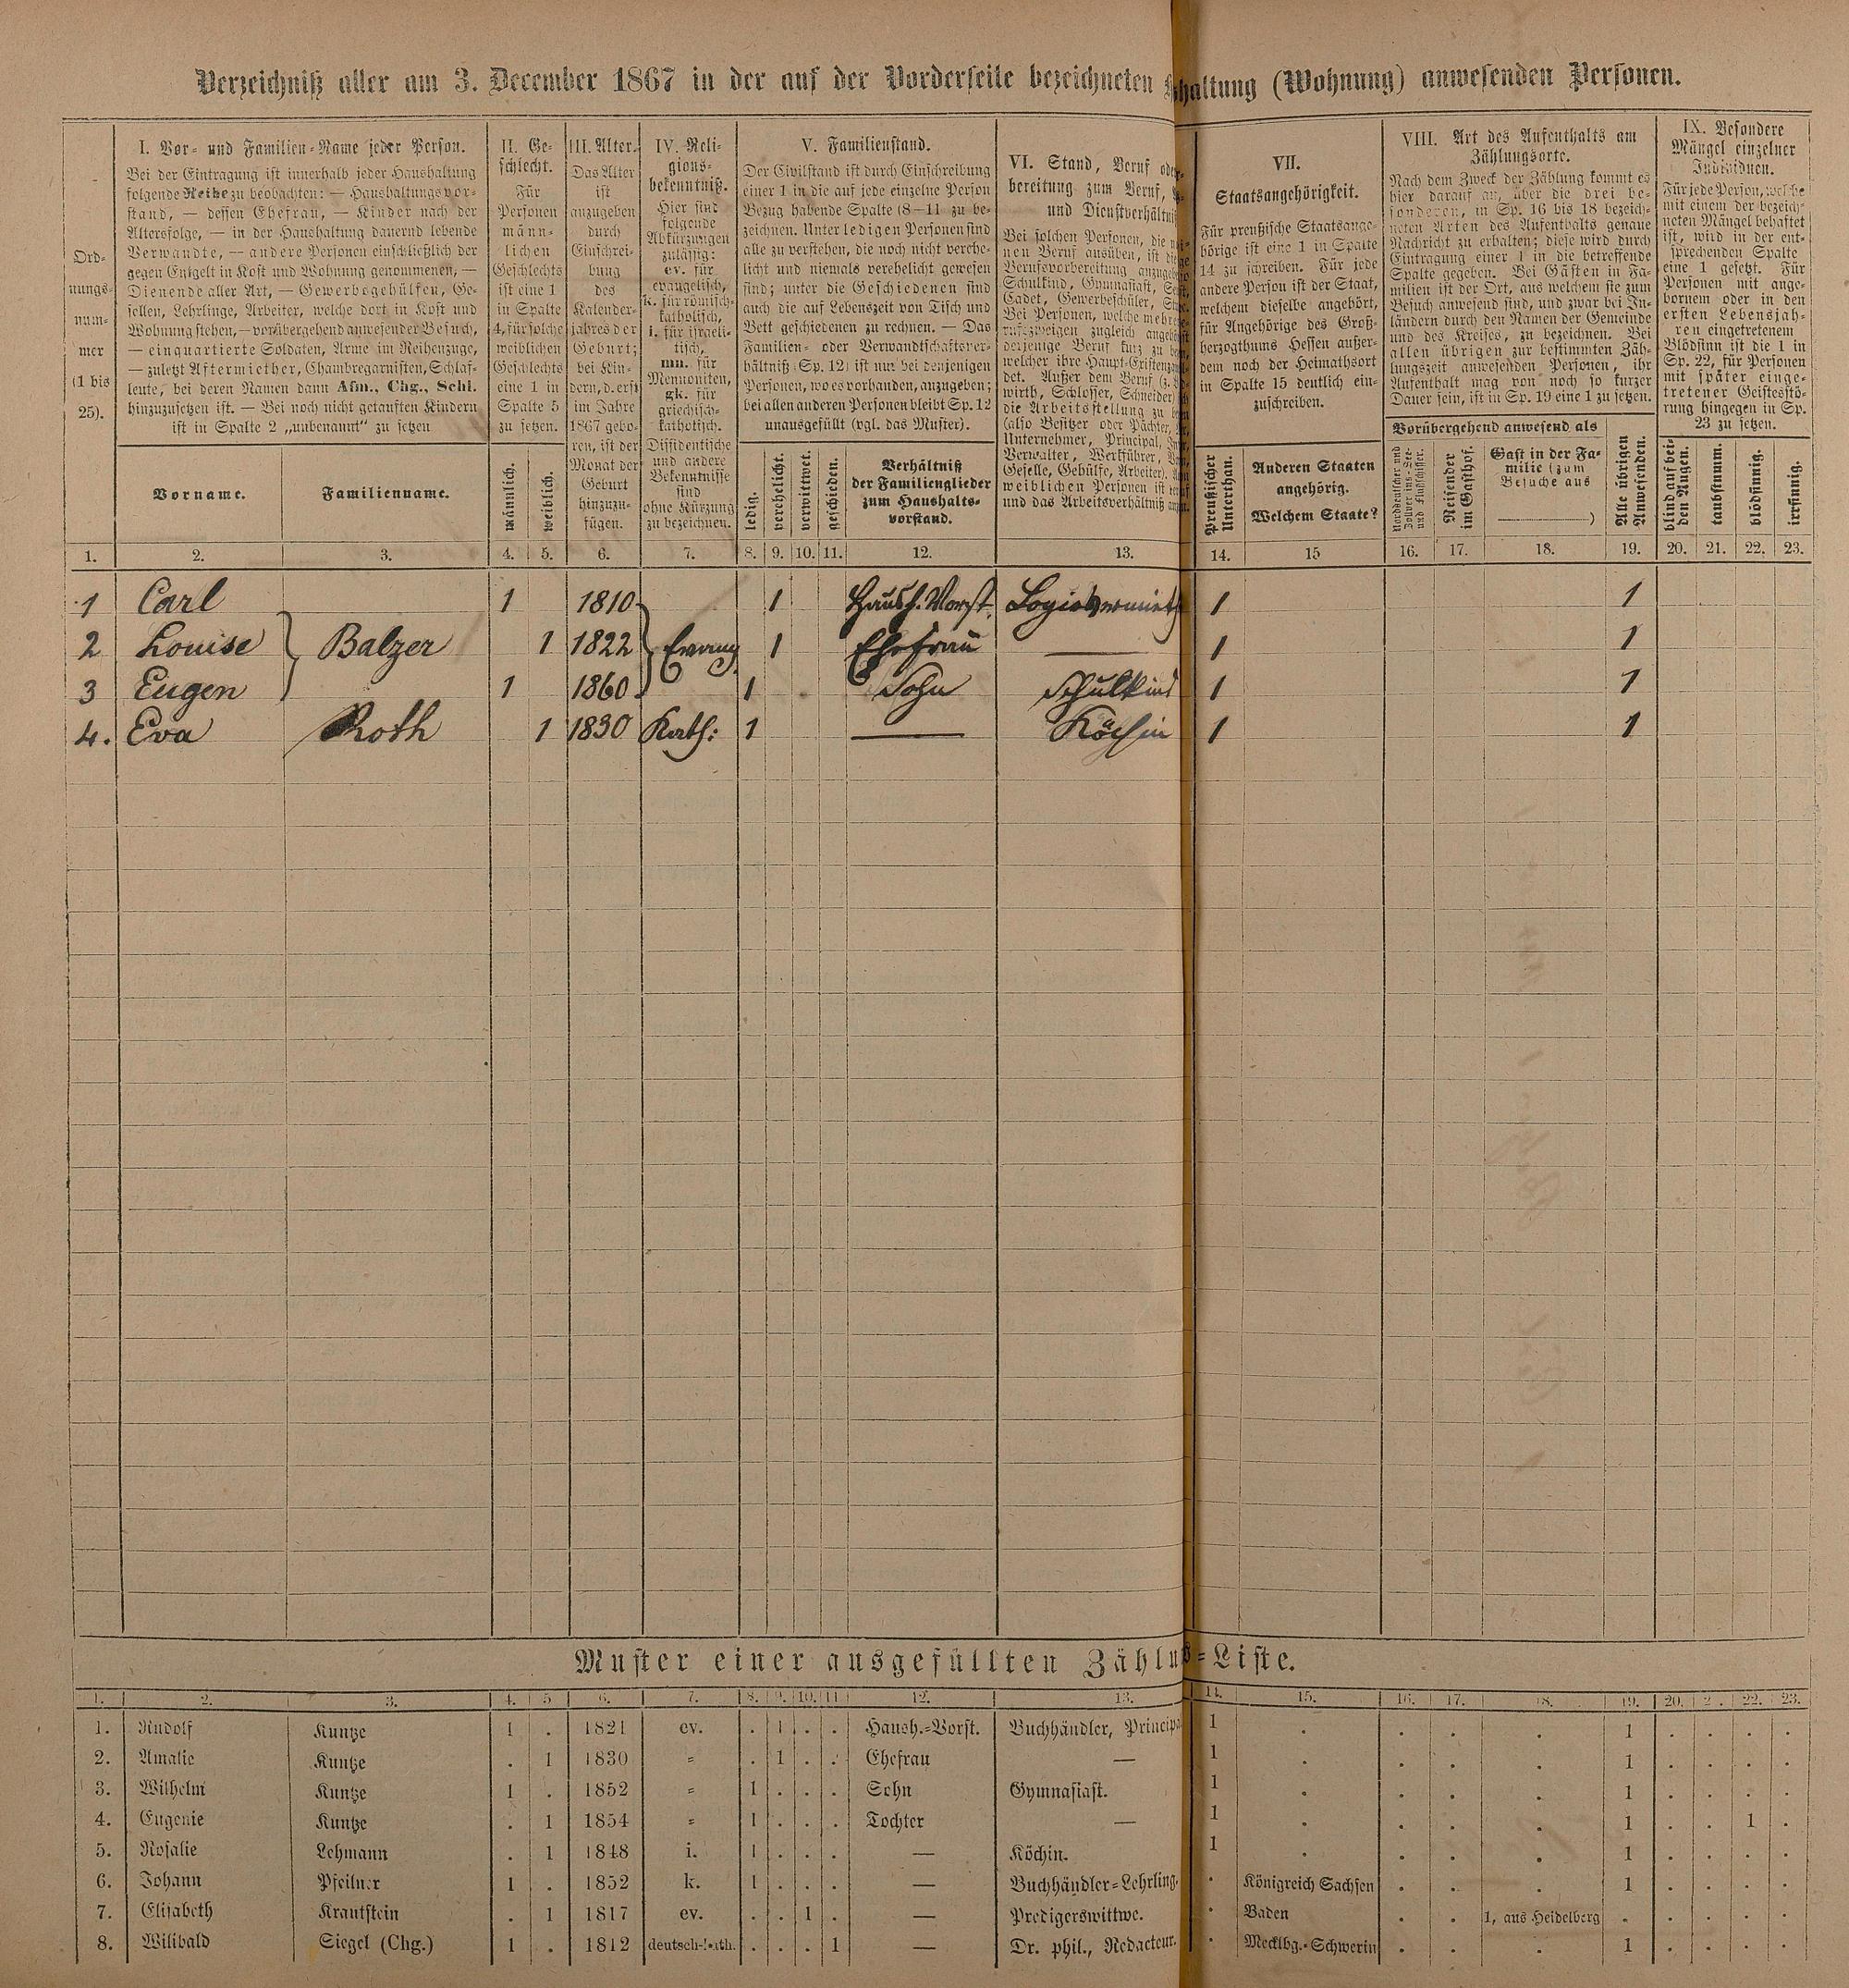 Verzeichniß aller am 3. December 1867 in der auf der Vorderseite bezeichneten haltung (Wohnung) anwesenden Personen.
Ord-
nungs-
num-
mer
(1 bis
25).
I. Vor- und Familien-Name jeder Person.
Bei der Eintragung ist innerhalb jeder Haushaltung
folgende Reihe zu beobachten: — Haushaltungsvor-
stand, — dessen Ehefrau, — Kinder nach der
Altersfolge, — in der Haushaltung dauernd lebende
Verwandte, — andere Personen einschließlich der
gegen Entgelt in Kost und Wohnung genommenen, —
Dienende aller Art, — Gewerbsgehülfen, Ge-
sellen, Lehrlinge, Arbeiter, welche dort in Kost und
Wohnung stehen, — vorübergehend anwesender Besuch,
— einquartierte Soldaten, Arme im Reihenzuge,
— zuletzt Aftermiether, Chambregarnisten, Schlaf-
leute, bei deren Namen dann Afm., Chg., Schl.
hinzuzusetzen ist. — Bei noch nicht getauften Kindern
ist in Spalte 2 „unbenannt" zu setzen
Vorname.
Familienname.
II. Ge-
schlecht.
Für
Personen
männ-
lichen
Geschlechts
ist eine 1
in Spalte
4, für solche
weiblichen
Geschlechts
eine 1 in
Spalte 5
zu setzen.
männlich.
weiblich.
III. Alter.
Das Alter
ist
anzugeben
durch
Einschrei-
bung
des
Kalender-
jahres der
Geburt;
bei Kin-
dern, d. erst
im Jahre
1867 gebo-
ren, ist der
Monat der
Geburt
hinzuzu-
fügen.
IV. Reli-
gions-
bekenntniß.
Hier sind
folgende
Abkürzungen
zulässig:
ev. für
evangelisch,
k. für römisch-
katholisch,
i. für israeli-
tisch,
mn. für
Mennoniten,
gk. für
griechisch-
katholisch.
Dissidentische
und andere
Bekenntnisse
sind
ohne Kürzung
zu bezeichnen.
V. Familienstand.
Der Civilstand ist durch Einschreibung
einer 1 in die auf jede einzelne Person
Bezug habende Spalte (8—11 zu be-
zeichnen. Unter ledigen Personen sind
alle zu verstehen, die noch nicht verehe-
licht und niemals verehelicht gewesen
sind; unter die Geschiedenen sind
auch die auf Lebenszeit von Tisch und
Bett geschiedenen zu rechnen. — Das
Familien- oder Verwandtschaftsver-
hältniß (Sp. 12) ist nur bei denjenigen
Personen, wo es vorhanden, anzugeben;
bei allen anderen Personen bleibt Sp. 12
unausgefüllt (vgl. das Muster).
ledig.
verehelicht.
verwittwet.
geschieden.
Verhältniß
der Familienglieder
zum Haushalts-
vorstand.
VI. Stand, Beruf oder
bereitung zum Beruf,
und Dienstverhältniß
Bei solchen Personen, die
nen Beruf ausüben, ist die
Berufsvorbereitung
Schulkind, Gymnasiast,
Cadet, Gewerbeschüler,
Bei Personen, welche mehre
rufszweigen zugleich
derjenige Beruf kurz zu
welcher ihre Haupt-
det. Außer dem Beruf
wirth, Schlosser, Schneider)
die Arbeitsstellung zu
(also Besitzer oder Pächter,
Unternehmer, Principal,
Verwalter, Werkführer,
Geselle, Gehülfe, Arbeiter).
weiblichen Personen ist
und das Arbeitsverhältniß
VII.
Staatsangehörigkeit.
Für preußische Staatsange-
hörige ist eine 1 in Spalte
14 zu schreiben. Für jede
andere Person ist der Staat,
welchem dieselbe angehört,
für Angehörige des Groß-
herzogthums Hessen außer-
dem noch der Heimathsort
in Spalte 15 deutlich ein-
zuschreiben.
Preußischer
Unterthan.
Anderen Staaten
angehörig.
Welchem Staate?
VIII. Art des Aufenthalts am
Zählungsorte.
Nach dem Zweck der Zählung kommt es
hier darauf an, über die drei be-
sonderen, in Sp. 16 bis 18 bezeich-
neten Arten des Aufenthalts genaue
Nachricht zu erhalten; diese wird durch
Eintragung einer 1 in die betreffende
Spalte gegeben. Bei Gästen in Fa-
milien ist der Ort, aus welchem sie zum
Besuch anwesend sind, und zwar bei In-
ländern durch den Namen der Gemeinde
und des Kreises, zu bezeichnen. Bei
allen übrigen zur bestimmten Zäh-
lungszeit anwesenden Personen, ihr
Aufenthalt mag von noch so kurzer
Dauer sein, ist in Sp. 19 eine 1 zu setzen.
Vorübergehend anwesend als
Norddeutscher und
Zollvereins-See-
und Flußschiffer.
Reisender
im Gasthof.
Gast in der Fa-
milie (zum
Besuche aus
)
Alle übrigen
Anwesenden.
IX. Besondere
Mängel einzelner
Individuen.
Für jede Person, welche
mit einem der bezeich-
neten Mängel behaftet
ist, wird in der ent-
sprechenden Spalte
eine 1 gesetzt. Für
Personen mit ange-
bornem oder in den
ersten Lebensjah-
ren eingetretenem
Blödsinn ist die 1 in
Sp. 22, für Personen
mit später einge-
tretener Geistesstö-
rung hingegen in Sp.
23 zu setzen.
blind auf bei-
den Augen.
taubstumm.
blödsinnig.
irrsinnig.
1. 2. 3. 4. 5. 6. 7. 8. 9. 10. 11. 12. 13. 14. 15 16. 17. 18. 19. 20. 21. 22. 23.
1 Carl 1 1810 1 Haush. Vorst. Logisvermieth 1 1
2 Louise Balzer 1 1822 Evang. 1 Ehefrau — 1 1
3 Eugen 1 1860 1 Sohn Schulkind 1 1
4. Eva Roth 1 1830 Kath: 1 — Köchin 1 1
Muster einer ausgefüllten Zählungs-Liste.
1. 2. 3. 4. 5 6. 7. 8. 9. 10. 11 12. 13. 14. 15. 16. 17. 18. 19. 20. 2 . 22. 23.
1. Rudolf Kuntze 1 . 1821 ev. . 1 . . Haush.-Vorst. Buchhändler, Principal 1 . . . . 1 . . . .
2. Amalie Kuntze . 1 1830 " . 1 . . Ehefrau — 1 . . . . 1 . . . .
3. Wilhelm Kuntze 1 . 1852 " 1 . . . Sohn Gymnasiast. 1 . . . . 1 . . . .
4. Eugenie Kuntze . 1 1854 " 1 . . . Tochter — 1 . . . . 1 . . 1 .
5. Rosalie Lehmann . 1 1848 i. 1 . . . — Köchin. 1 . . . . 1 . . . .
6. Johann Pfeilner 1 . 1852 k. 1 . . . — Buchhändler-Lehrling. . Königreich Sachsen . . . 1 . . . .
7. Elisabeth Krautstein . 1 1817 ev. . . 1 . — Predigerswittwe. . Baden . . 1, aus Heidelberg . . . . .
8. Wilibald Siegel (Chg.) 1 . 1812 deutsch-kath. . . . 1 — Dr. phil., Redacteur. . Mecklbg.-Schwerin . . . 1 . . . .